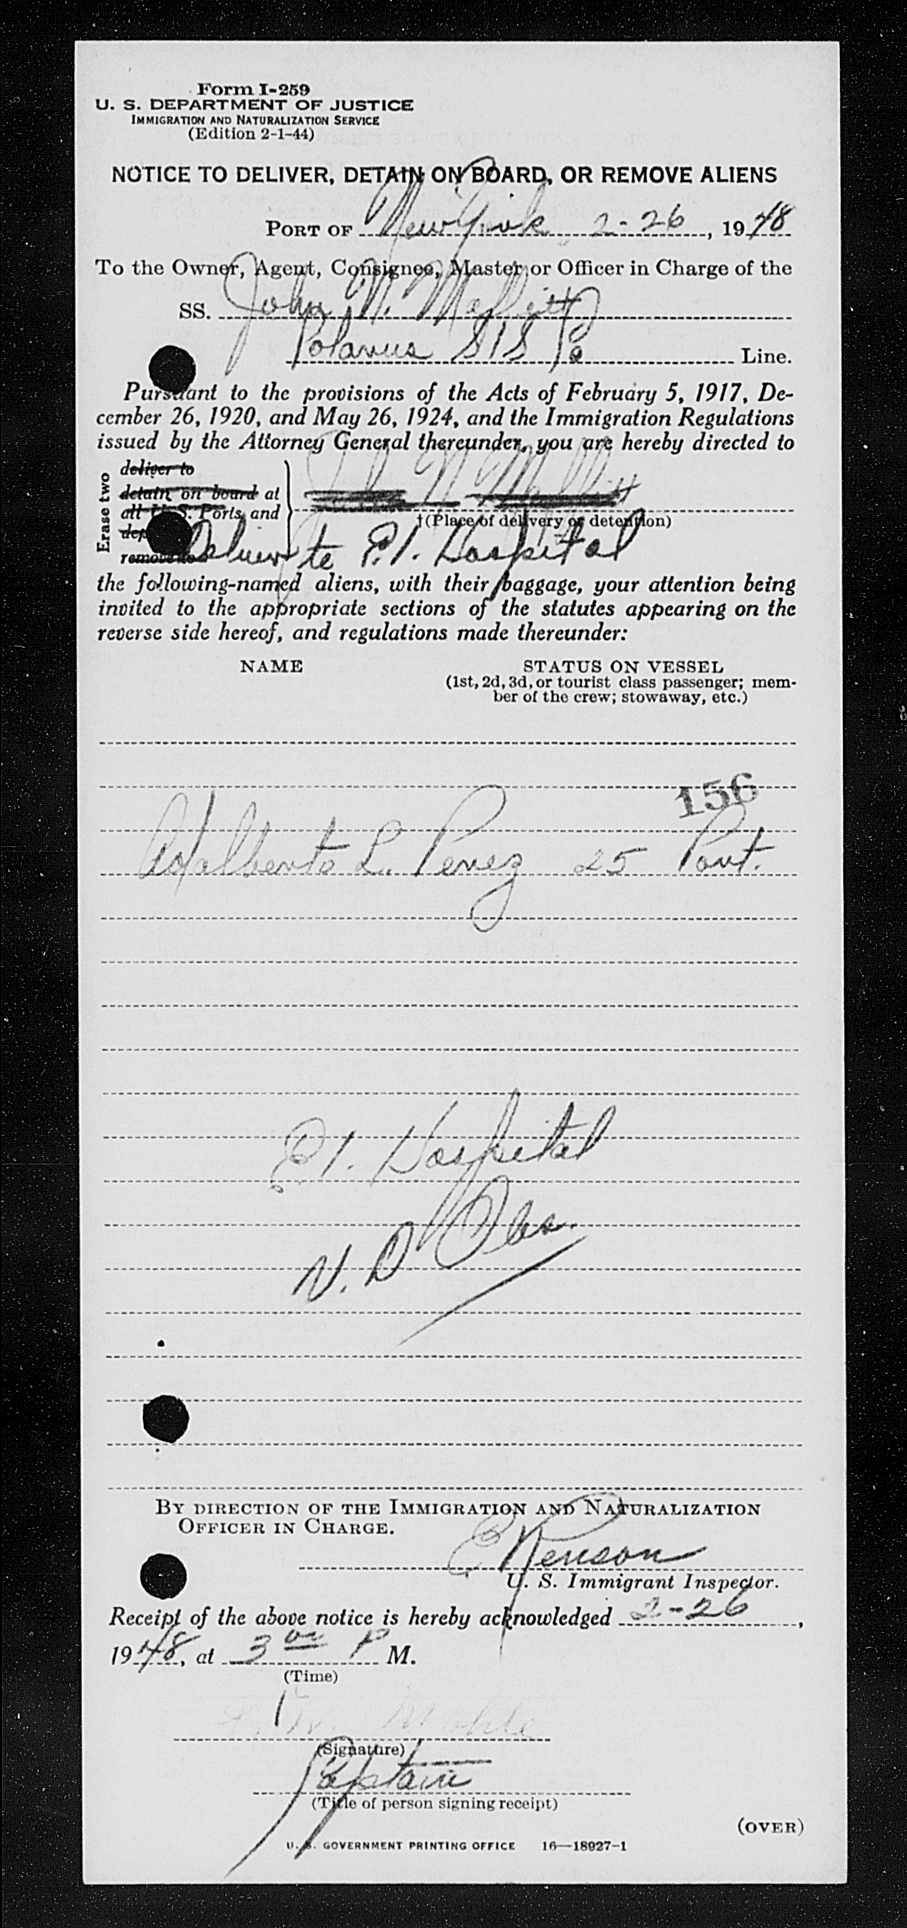 Form I-259
U. S. DEPARTMENT OF JUSTICE
IMMIGRATION AND NATURALIZATION SERVICE
(Edition 2-1-44)
NOTICE TO DELIVER, DETAIN ON BOARD, OR REMOVE ALIENS
PORT OF New York 2-26, 1948
To the Owner, Agent, Consignee, Master, or Officer in Charge of the
SS. John N. Maffitt
Polarus S/S Co Line.
Pursuant to the provisions of the Acts of February 5, 1917, De-
cember 26, 1920, and May 26, 1924, and the Immigration Regulations
issued by the Attorney General thereunder, you are hereby directed to
Erase two
deliver to
detain on board at
all U. S. Ports, and
remove John N Maffitt
†(Place of delivery or detention)
Deliver to E.I. Hospital
the following-named aliens, with their baggage, your attention being
invited to the appropriate sections of the statutes appearing on the
reverse side hereof, and regulations made thereunder:
NAME STATUS ON VESSEL
(1st, 2d, 3d, or tourist class passenger; mem-
ber of the crew; stowaway, etc.)
156
Adalberto L. Perez 25 Port.
E.I. Hospital
V. D Obs.
BY DIRECTION OF THE IMMIGRATION AND NATURALIZATION
OFFICER IN CHARGE.
U. S. Immigrant Inspector.
Receipt of the above notice is hereby acknowledged 2-26,
1948, at 3 00 P M.
(Time)
(Signature)
Captain
(Title of person signing receipt)
(OVER)
U. S. GOVERNMENT PRINTING OFFICE 16—18927-1